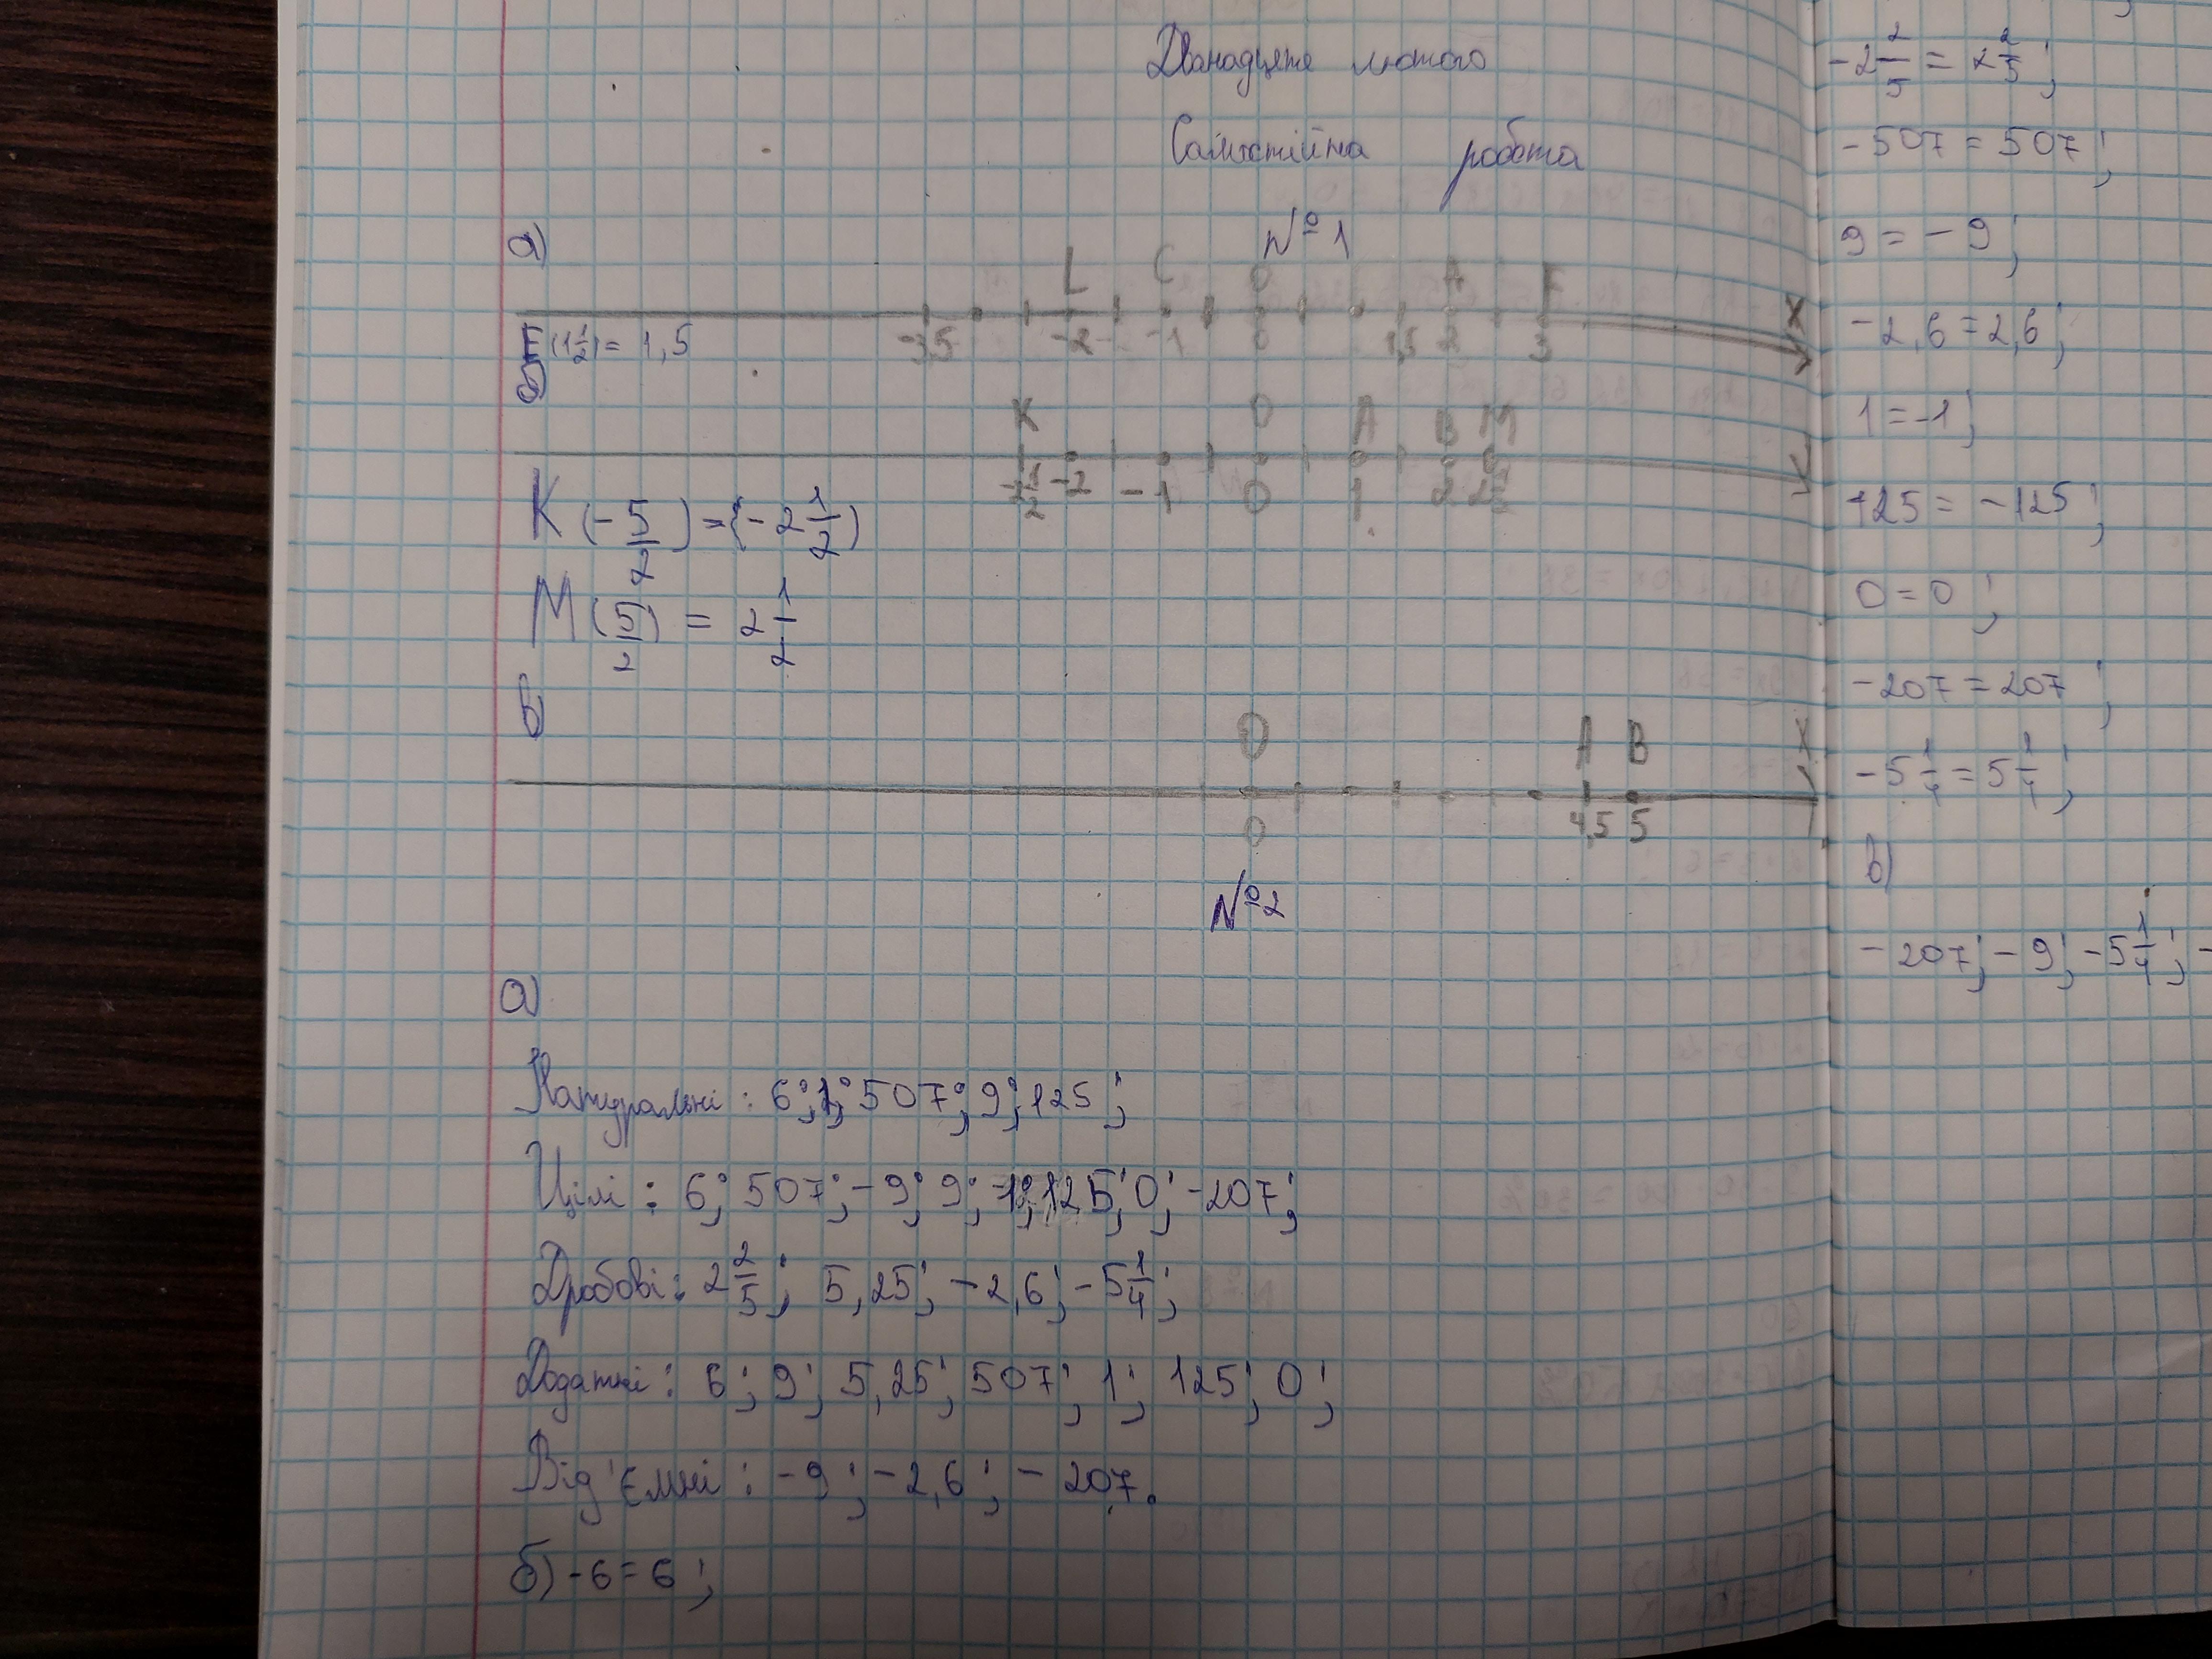 Дванадцяте лютого
Самостійна робота
№ 1
а)
L C 0 A F X
-3,5 -2 -1 0 1,5 2 3
F (1 1/2) = 1,5
б)
K O A B M X
-2 1/2 -2 -1 0 1 2 2 1/2
K (- 5/2) = (- 2 1/2)
M (5/2) = 2 1/2
O A B X
0 4,5 5
№ 2
а)
Натуральні : 6; 1; 507; 9; 125 ;
Цілі : 6; 507; -9; 9; -1; 125; 0; -207;
Дробові : 2 2/5 ; 5,25; -2,6; -5 1/4 ;
Додатні : 6 ; 9; 5,25; 507; 1; 125; 0;
Від'ємні : -9 ; -2,6 ; - 207.
б) -6 = 6 ;
-2 2/5 = 2 2/5 ;
-507 = 507 ;
9 = -9 ;
-2,6 = 2,6 ;
1 = -1 ;
125 = -125 ;
0 = 0 ;
-207 = 207 ;
-5 1/4 = 5 1/4 ;
в)
-207; -9; -5 1/4 ; -